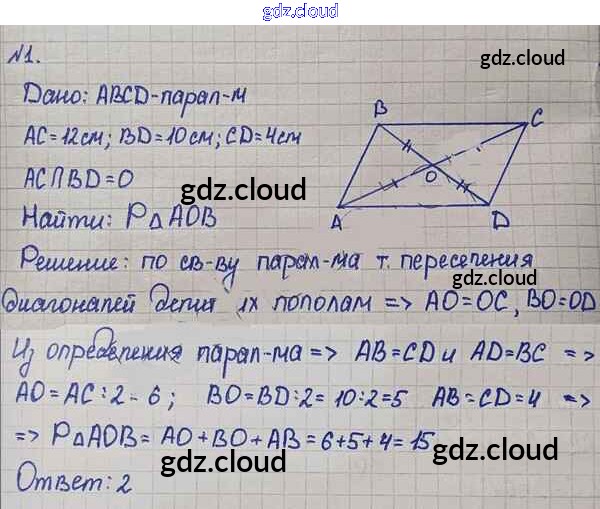 gdz.cloud
№1.
gdz.cloud
Дано: ABCD-парал-м
B
C
AC=12см; BD=10см; CD=4см
AC∩BD=O
gdz.cloud
O
Найти: P△AOB
A
D
gdz.cloud
Решение: по св-ву парал-ма т. пересечения
диагоналей делит их пополам => AO=OC, BO=OD
gdz.cloud
Из определения парал-ма => AB=CD и AD=BC =>
gdz.cloud
AO=AC:2-6; BO=BD:2=10:2=5 AB=CD=4 =>
=> P△AOB= AO+BO+AB=6+5+4=15
gdz.cloud
gdz.cloud
Ответ: 2